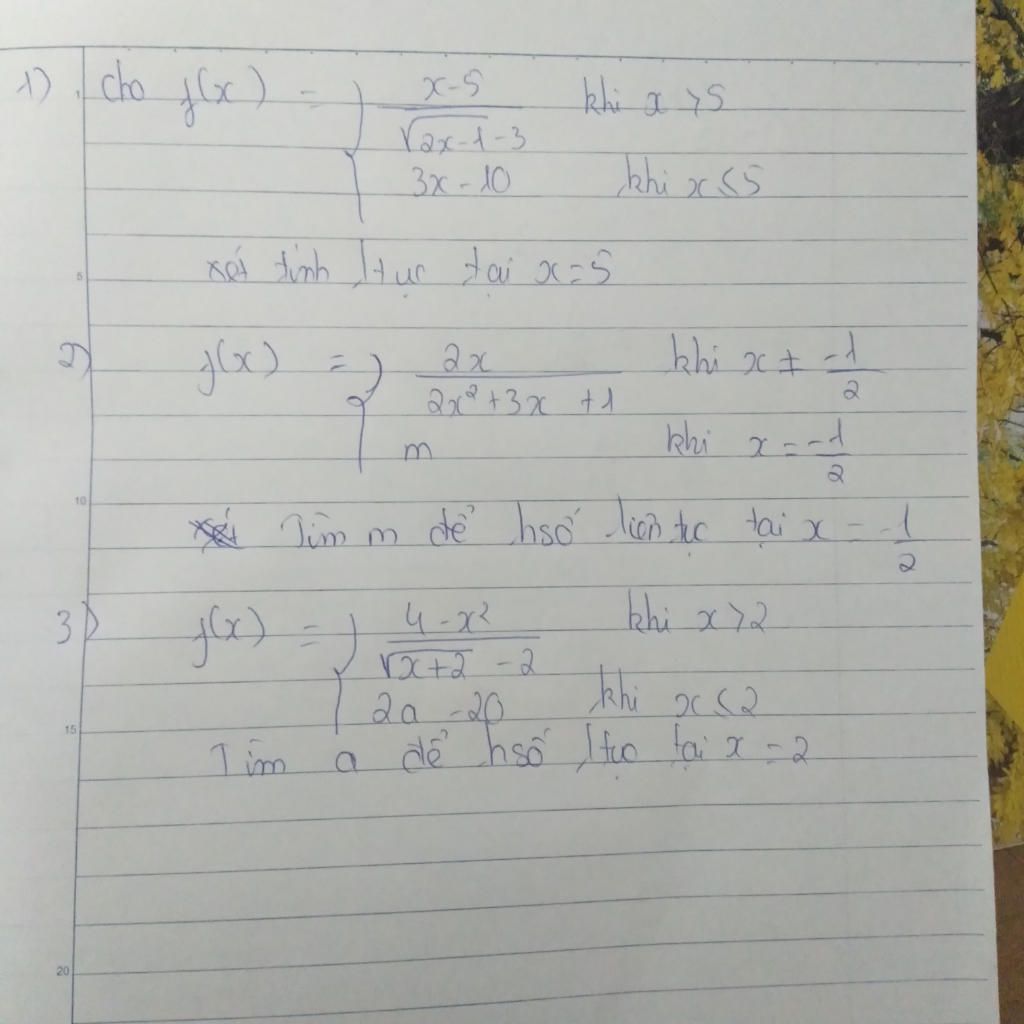 1) Cho f(x) = { (x-5)/(√(2x-1)-3) khi x > 5
3x - 10 khi x ≤ 5
xét tính ltục tại x = 5
2) f(x) = { 2x/(2x²+3x+1) khi x ≠ -1/2
m khi x = -1/2
Tìm m để hsố liên tục tại x = -1/2
3) f(x) = { (4-x²)/(√(x+2)-2) khi x > 2
2a - 20 khi x ≤ 2
Tìm a để hsố ltục tại x = 2
5
10
15
20